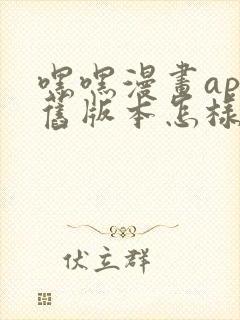 嘿嘿漫畫ap
舊版本怎樣
伏立群